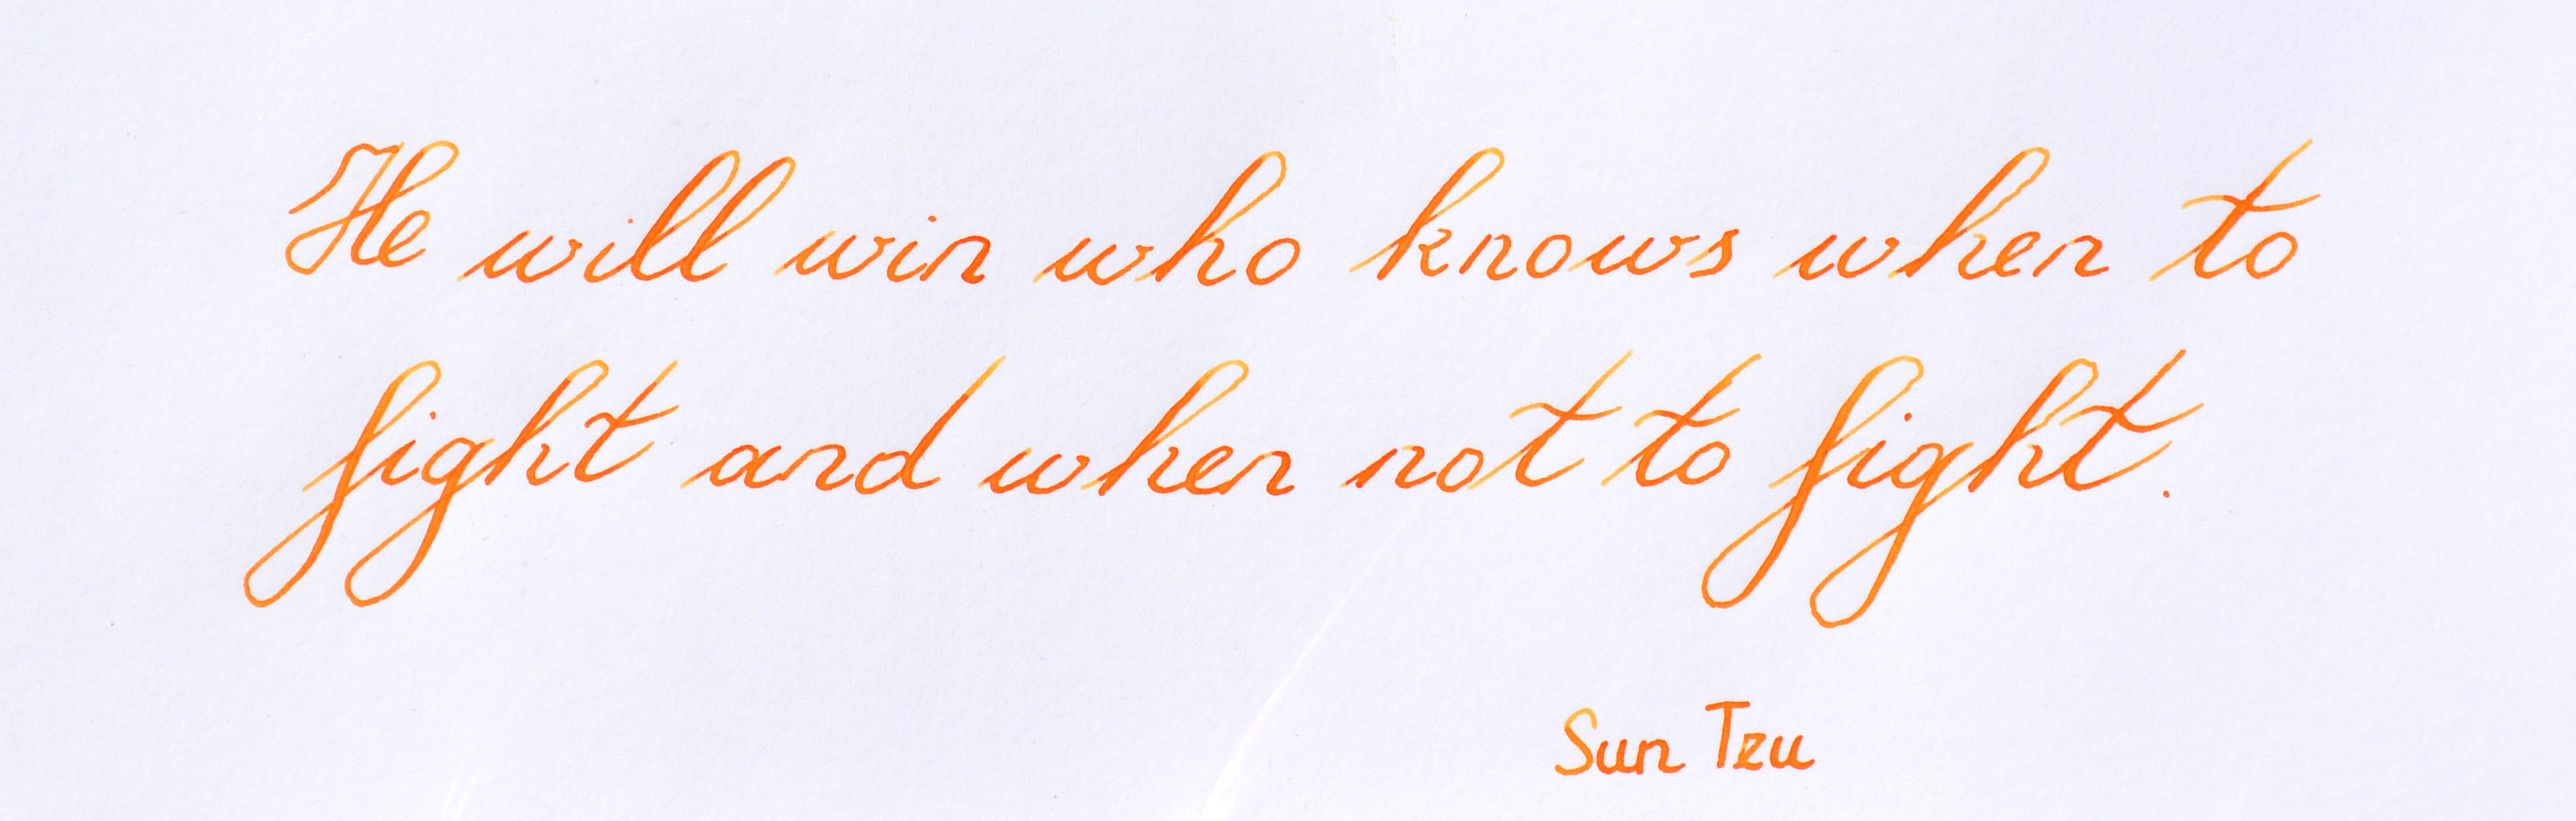 He will win who knows when to
fight and when not to fight.
Sun Tzu